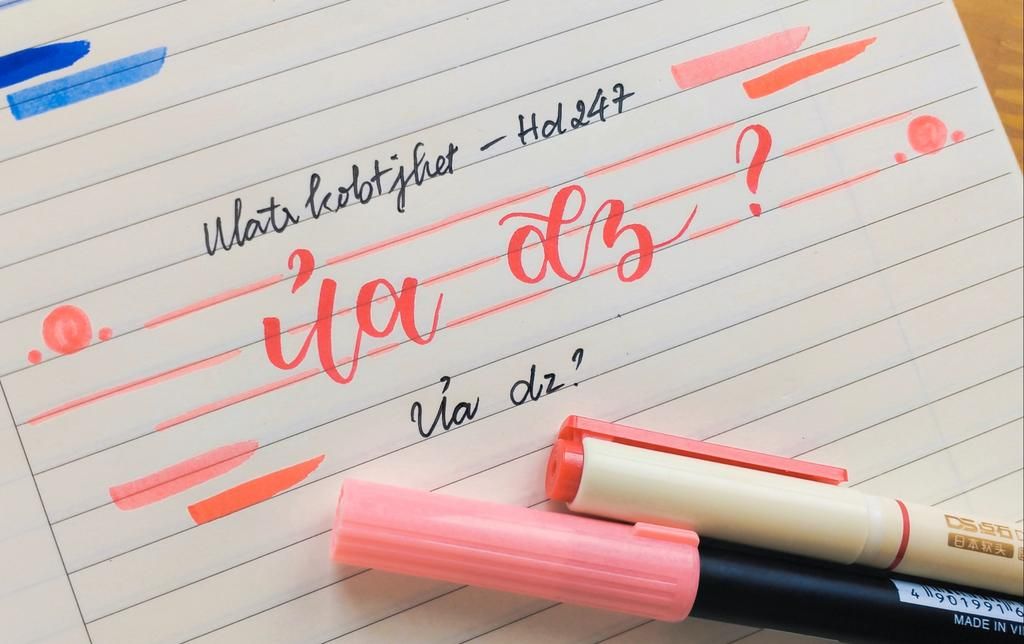 Watrkobtjhet - Hd247
Ủa dz?
Ủa dz?
日本软头
4 901991 6
MADE IN VI